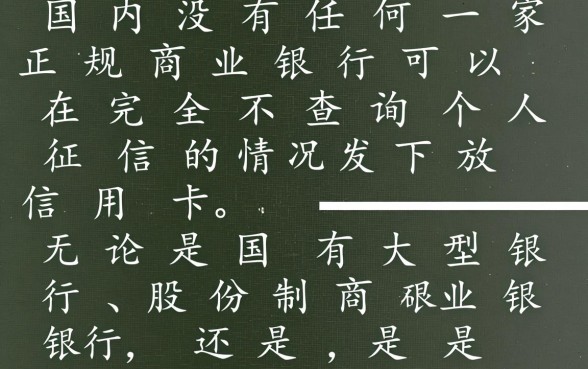 国内没有任何一家
正规商业银行可以
在完全不查询个人
征信的情况发下放
信用卡。
无论是国有大型银
行、股份制商业银
银行，还是，是是